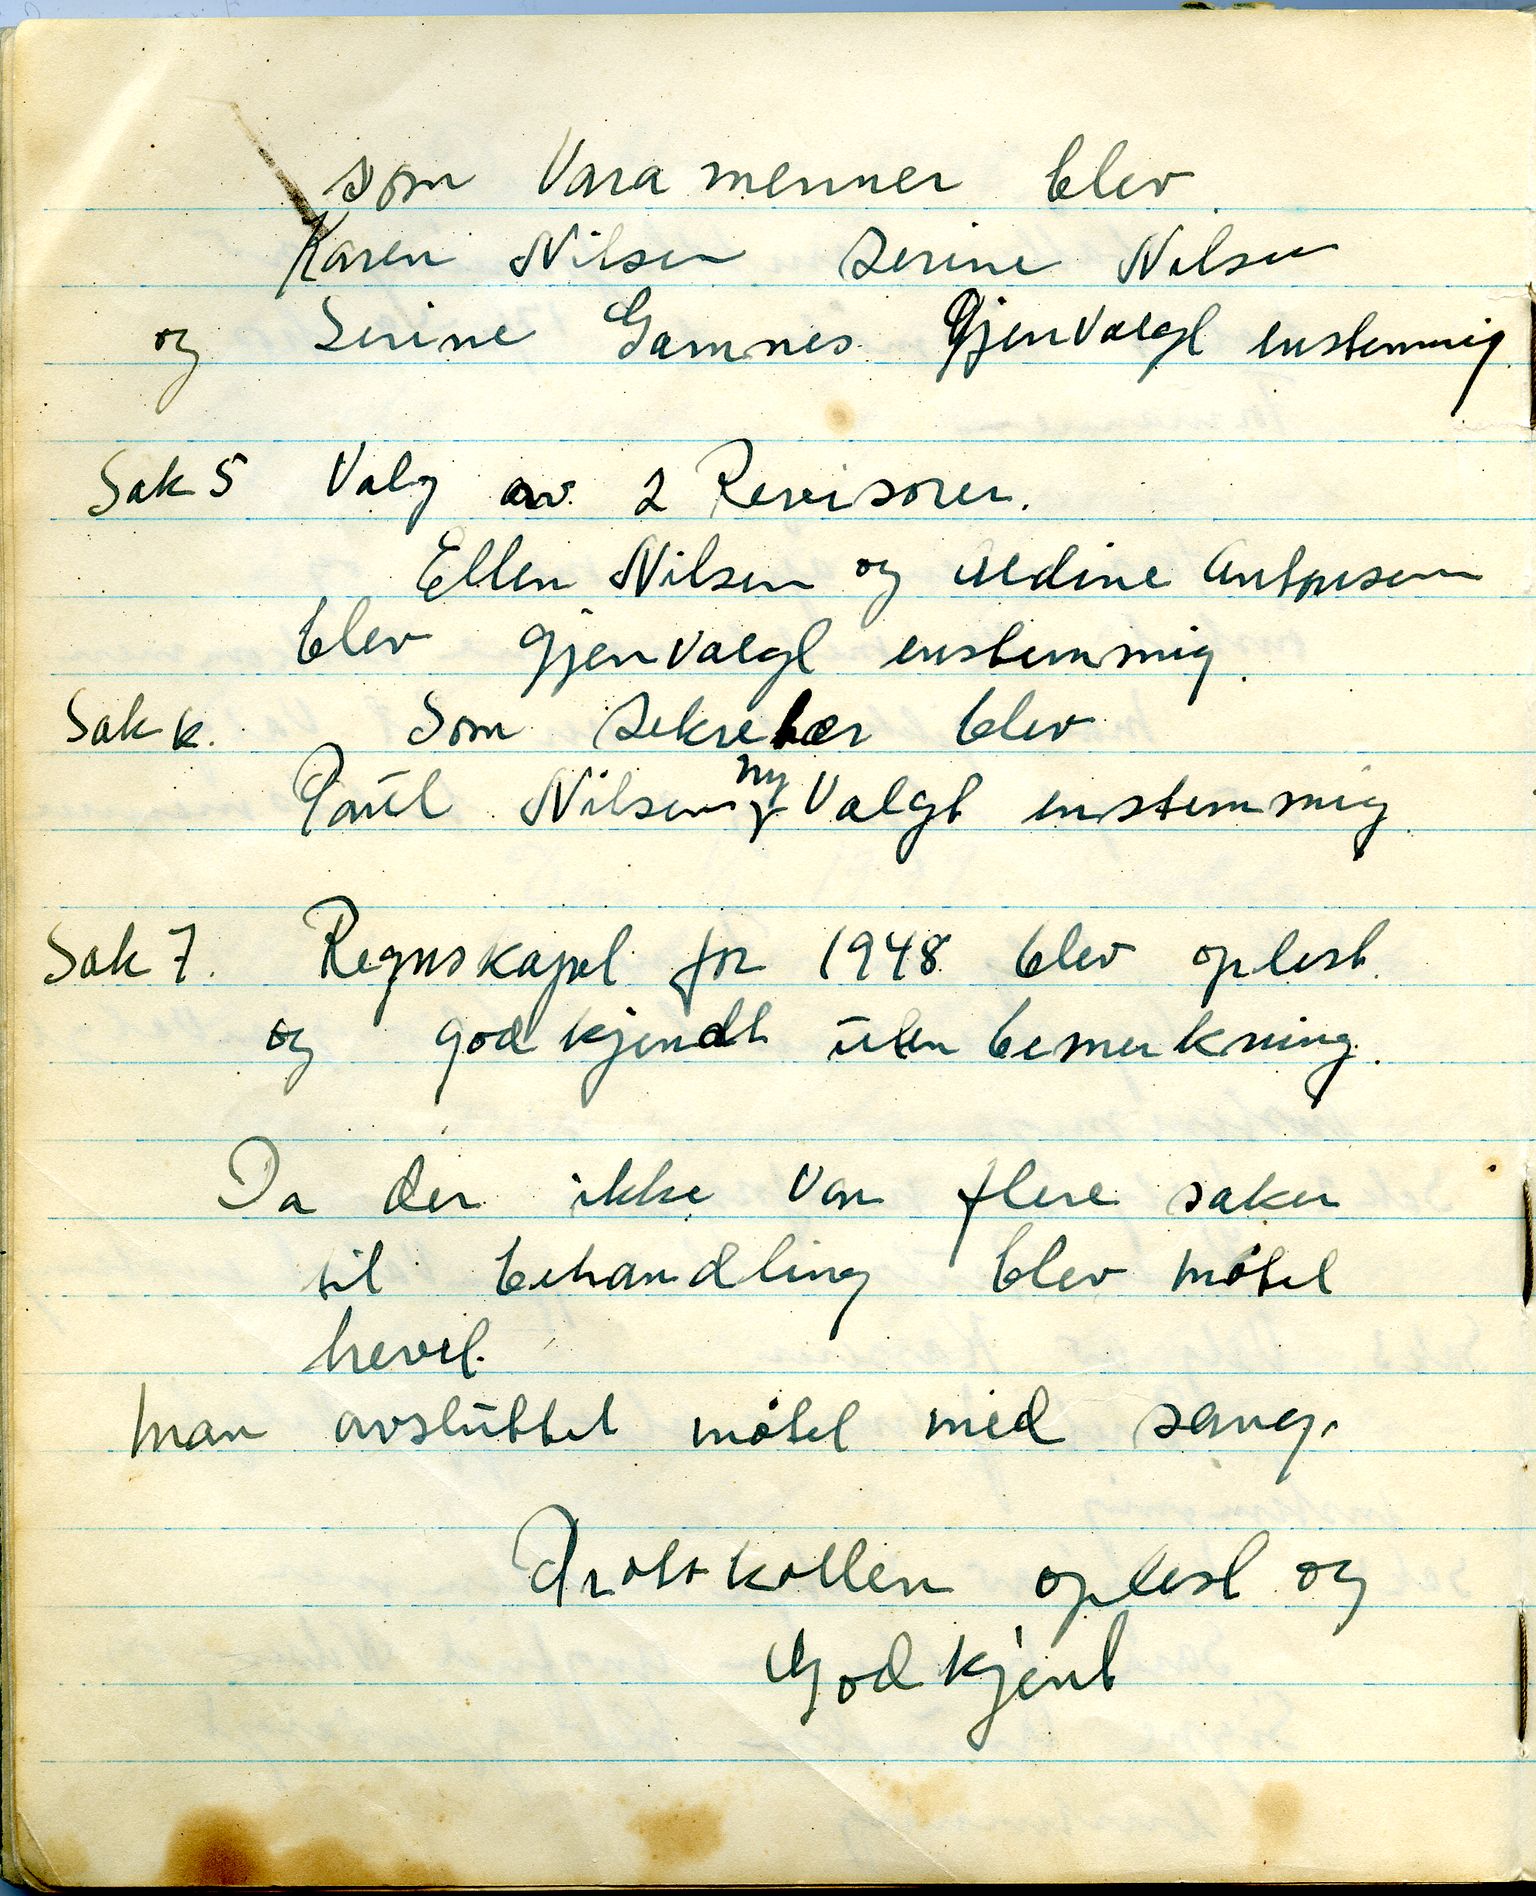 som Vara menner blev
Karen Nilsen Serine Nilsen
og Serine Gamnes Gjenvalgt enstemmig
Sak 5 Valg av 2 Revisorer.
Ellen Nilsen og Aldine Antonsen
blev gjenvalgt enstemmig.
Sak 6. Som Sekretær blev
Paul Nilsen ny Valgt enstemmig.
Sak 7. Regnskapet for 1948 blev oplest.
og godkjendt uten bemerkning.
Da der ikke var flere saker
til behandling blev møtet
hevet.
Man avsluttet møtet med sang.
Protokollen oplest og
Godkjent